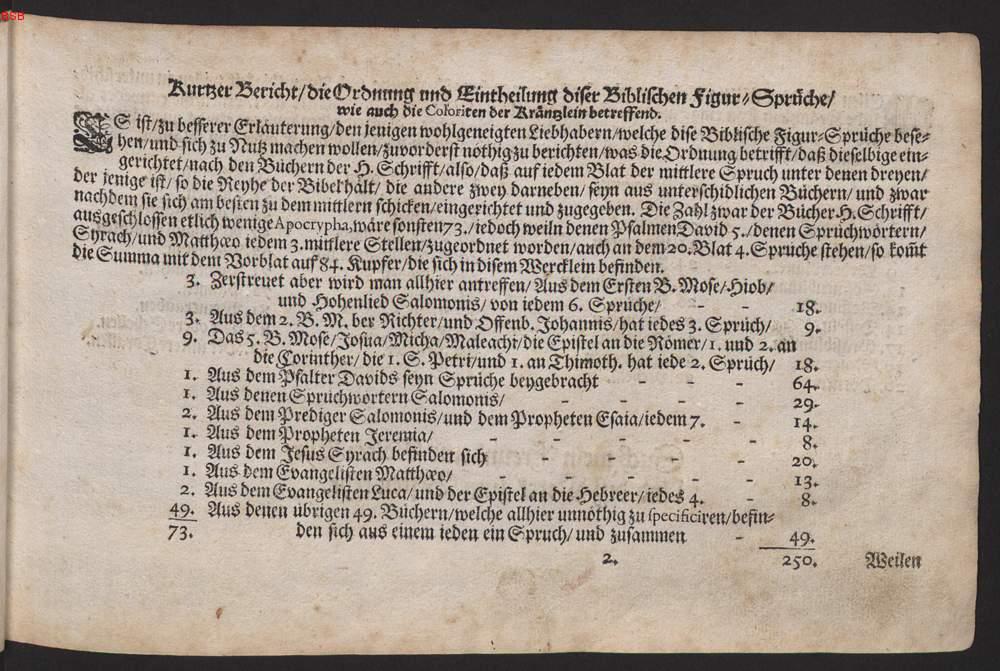 BSB
Kurtzer Bericht/die Ordnung und Eintheilung diser Biblischen Figur-Sprüche/
wie auch die Coloriten der Kräntzlein betreffend.
ES ist/zu besserer Erläuterung/den jenigen wohlgeneigten Liebhabern/welche dise Biblische Figur-Sprüche bese-
hen/und sich zu Nutz machen wollen/zuvorderst nöthig zu berichten/was die Ordnung betrifft/daß dieselbige ein-
gerichtet/nach den Büchern der H. Schrifft/also/daß auf iedem Blat der mittlere Spruch unter denen dreyen/
der jenige ist/so die Reyhe der Bibel hält/ die andere zwey darneben/ seyn aus unterschidlichen Büchern/ und zwar
nachdem sie sich am besten zu dem mittlern schicken/eingerichtet und zugegeben. Die Zahl zwar der Bücher H. Schrifft/
ausgeschlossen etlich wenige Apocrypha, wäre sonsten 73./iedoch weiln denen Psalmen David 5./denen Sprüchwörtern/
Syrach/und Matthæo iedem 3. mittlere Stellen/zugeordnet worden/auch an dem 20. Blat 4. Sprüche stehen/so kom̃t
die Summa mit dem Vorblat auf 84. Kupfer/die sich in disem Wercklein befinden.
3. Zerstreuet aber wird man allhier antreffen/ Aus dem Ersten B. Mose/Hiob/
und Hohenlied Salomonis/ von iedem 6. Sprüche/ - - 18.
3. Aus dem 2. B. M. der Richter/und Offenb. Johannis/hat iedes 3. Sprüch/ 9.
9. Das 5. B. Mose/Josua/Micha/Maleachi/die Epistel an die Römer/1. und 2. an
die Corinther/ die 1. S. Petri/und 1. an Thimoth. hat iede 2. Sprüch/ 18.
1. Aus dem Psalter Davids seyn Sprüche beygebracht - - - 64.
1. Aus denen Sprüchwörtern Salomonis/ - - - 29.
2. Aus dem Prediger Salomonis/und dem Propheten Esaia/iedem 7. - 14.
1. Aus dem Propheten Jeremia/ - - - - - 8.
1. Aus dem Jesus Syrach befinden sich - - - - 20.
1. Aus dem Evangelisten Matthæo/ - - - - 13.
2. Aus dem Evangelisten Luca/und der Epistel an die Hebreer/iedes 4. - 8.
49. Aus denen übrigen 49. Büchern/welche allhier unnöthig zu specificiren/befin-
73. den sich aus einem ieden ein Spruch/ und zusammen - 49.
2. 250. Weilen